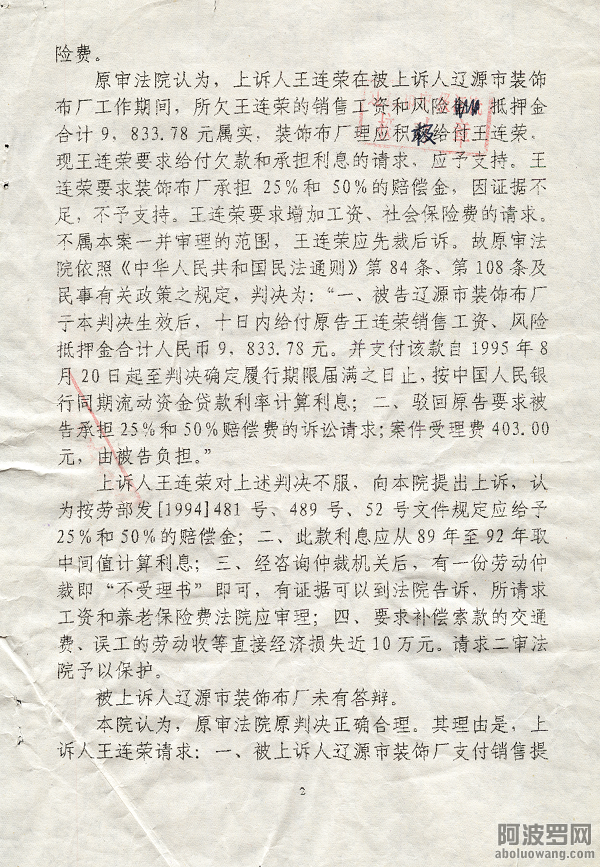 险费。
原审法院认为，上诉人王连荣在被上诉人辽源市装饰
布厂工作期间，所欠王连荣的销售工资和风险 抵押金
合计9，833.78元属实，装饰布厂理应积极给付王连荣，
现王连荣要求给付欠款和承担利息的请求，应予支持。王
连荣要求装饰布厂承担25%和50%的赔偿金，因证据不
足，不予支持。王连荣要求增加工资、社会保险费的请求。
不属本案一并审理的范围，王连荣应先裁后诉。故原审法
院依照《中华人民共和国民法通则》第84条、第108条及
民事有关政策之规定，判决为：“一、被告辽源市装饰布厂
于本判决生效后，十日内给付原告王连荣销售工资、风险
抵押金合计人民币9，833.78元。并支付该款自1995年8
月20日起至判决确定履行期限届满之日止，按中国人民银
行同期流动资金贷款利率计算利息；二、驳回原告要求被
告承担25%和50%赔偿费的诉讼请求；案件受理费403.00
元，由被告负担。”
上诉人王连荣对上述判决不服，向本院提出上诉，认
为按劳部发[1994]481号、489号、52号文件规定应给予
25%和50%的赔偿金；二、此款利息应从89年至92年取
中间值计算利息；三、经咨询仲裁机关后，有一份劳动仲
裁即“不受理书”即可，有证据可以到法院告诉，所请求
工资和养老保险费法院应审理；四、要求补偿索款的交通
费、误工的劳动收等直接经济损失近10万元。请求二审法
院予以保护。
被上诉人辽源市装饰布厂未有答辩。
本院认为，原审法院原判决正确合理。其理由是，上
诉人王连荣请求：一、被上诉人辽源市装饰厂支付销售提
2
阿波罗网
aboluowang.com